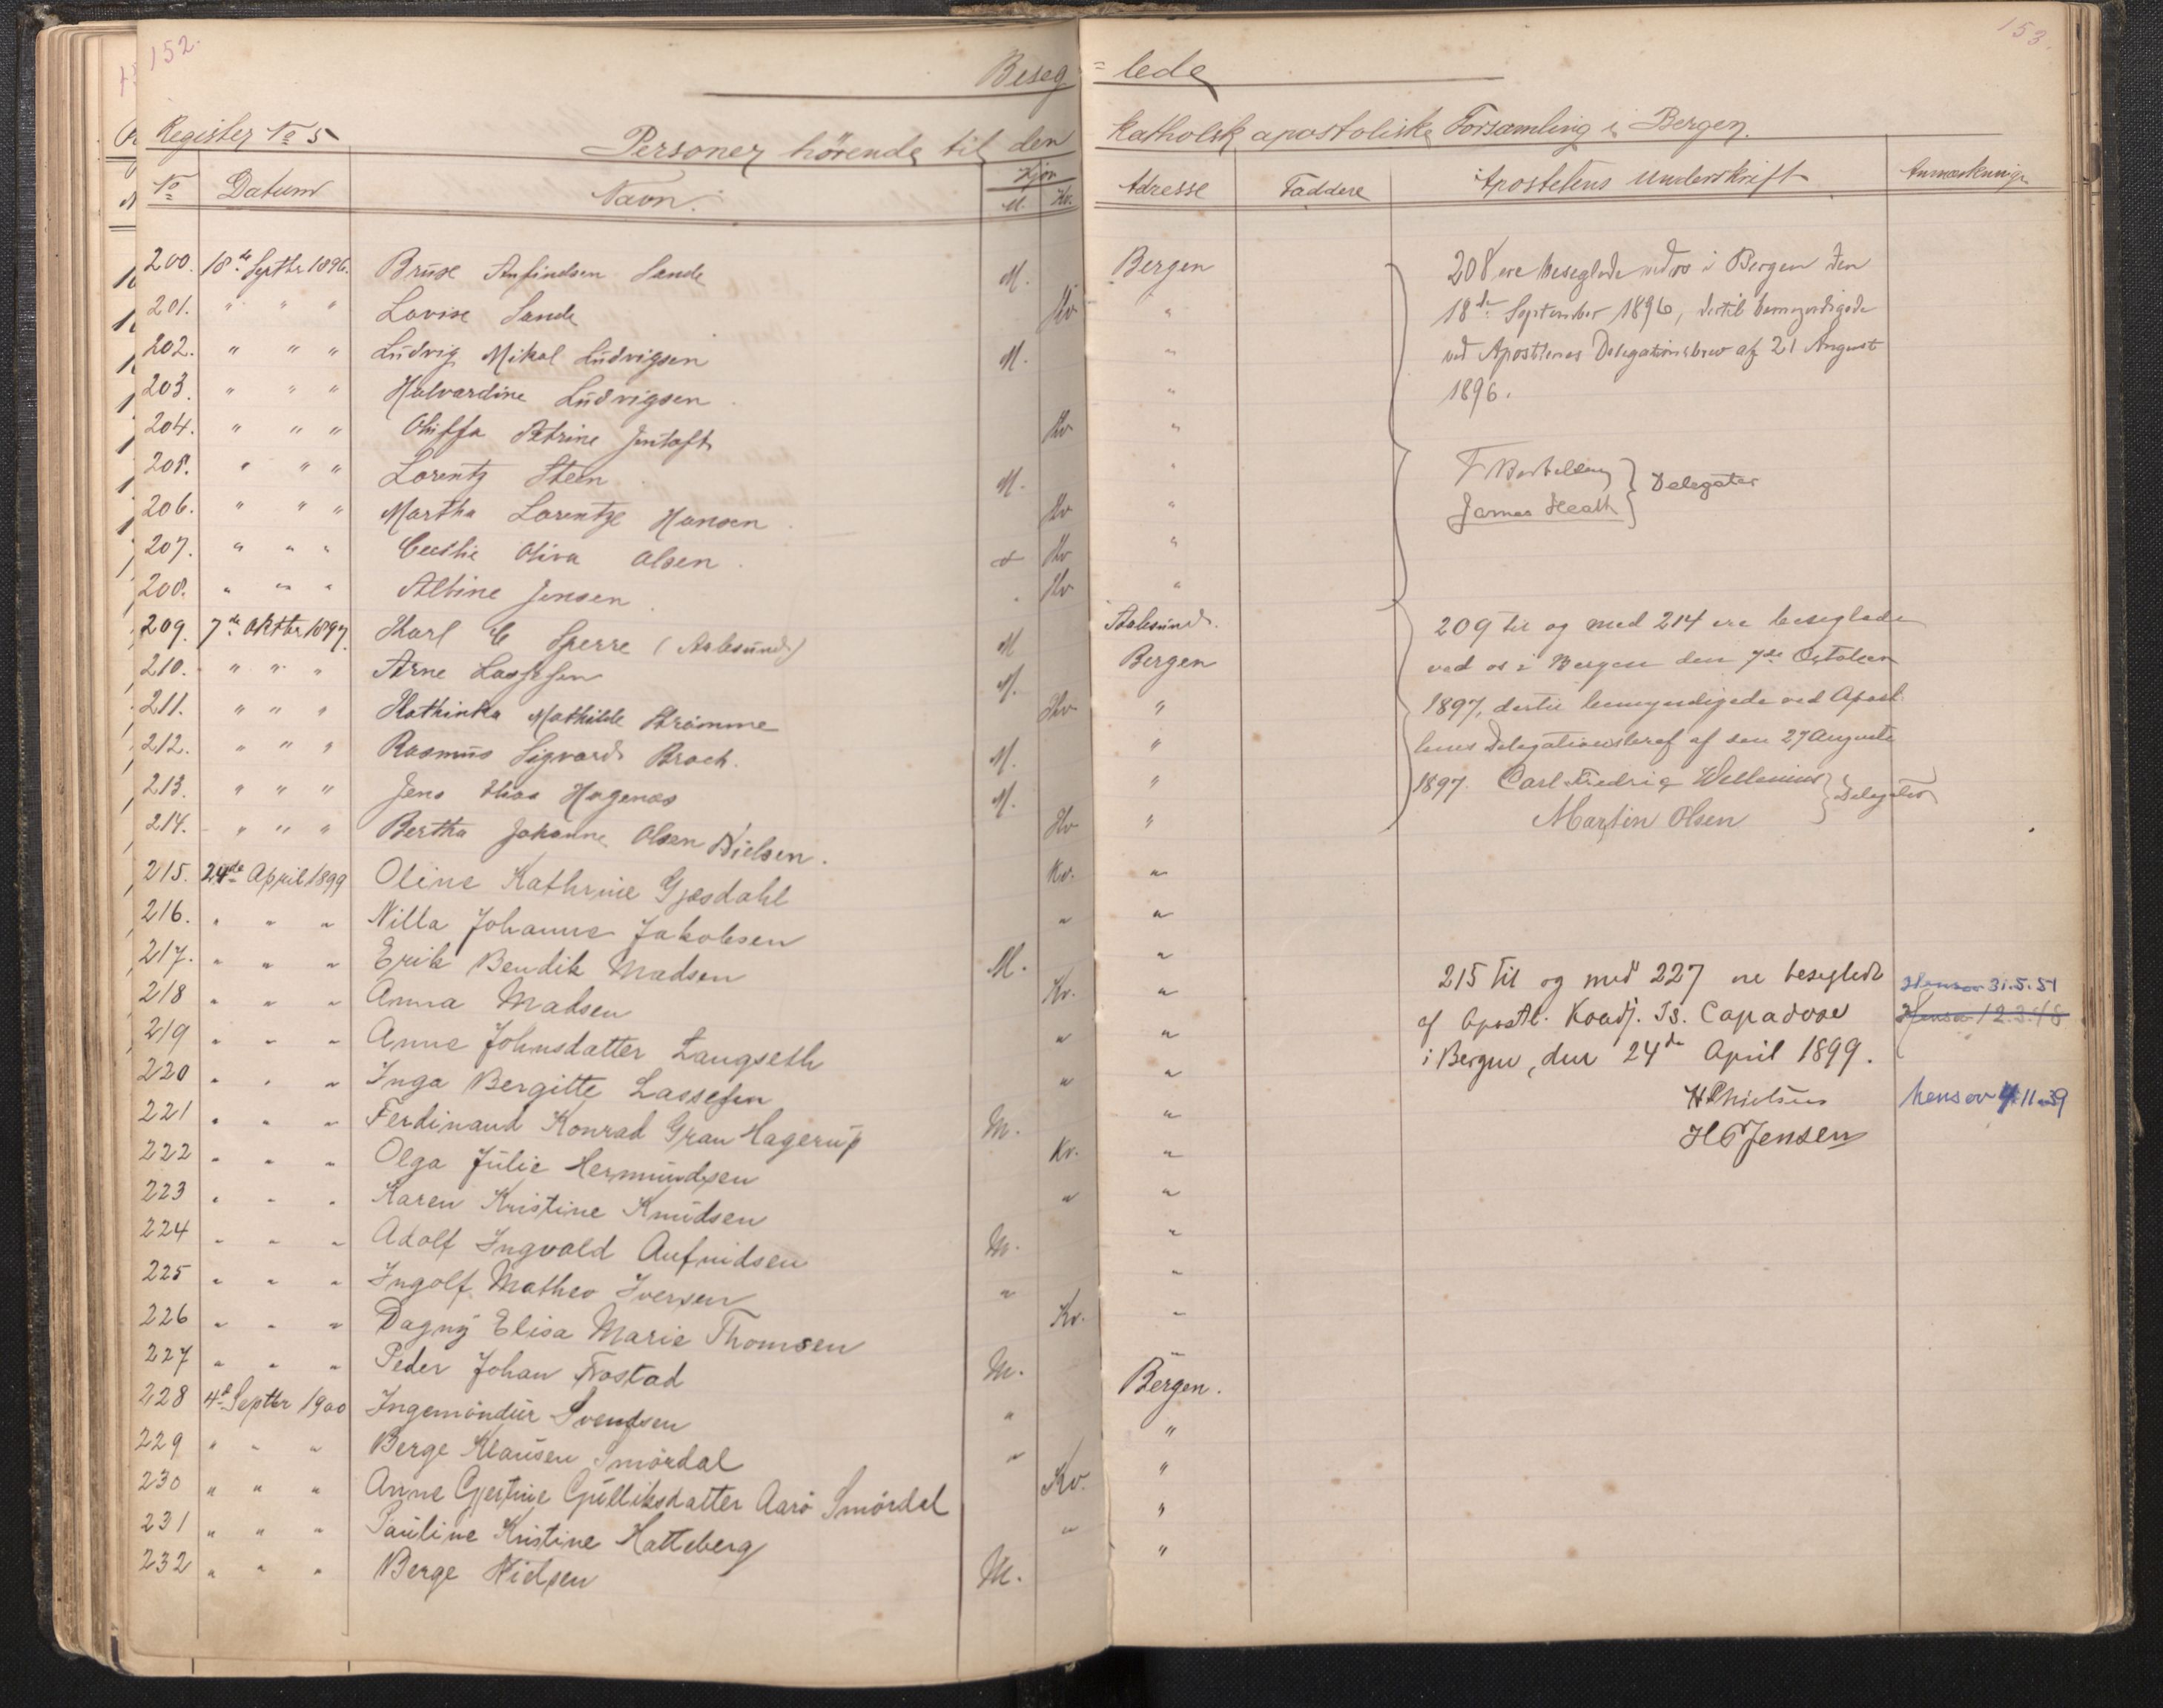 152.
153.
Beseg=lede
Register No 5
Personer hörende til den katholsk apostoliske Forsamling i Bergen.
No Datum Navn. Kjön M. Kv. Adresse Faddere Apostelens Underskrift Anmærkninger
200. 18de Septbr 1896. Anfindsen Sande M. Bergen
201. " " " Lovise Sande Kv "
202. " " " Ludvig Mikal Ludvigsen M. "
203. " " " Halvardine Ludvigsen "
204. " " " Petrine Jentoft Kv "
205. " " " Lorentz Steen M. "
206. " " " Martha Lorentze Hansen Kv "
207. " " " Oliva Olsen Kv "
208. " " " Albine Jensen Kv "
209. 7de Oktbr 1897. Karl E Sperre (Aalesund) M Aalesund.
210. " " " Arne Lassesen M. Bergen
211. " " " Kathinka Mathilde Strömme Kv "
212. " " " Rasmus Sigvard Brock. M. "
213. " " " Jens Elias Hagenæs M. "
214. " " " Bertha Johanne Olsen Nielsen. Kv "
215. 24de April 1899 Oline Kathrine Gjesdahl Kv. "
216. " " " Nilla Johanne Jakobsen " "
217. " " " Erik Bendik Madsen M. "
218 " " " Anna Madsen Kv. "
219 " " " Anne Johnsdatter Langseth " "
220 " " " Inga Bergitte Lassesen " "
221 " " " Ferdinand Konrad Grau Hagerup M. "
222 " " " Olga Julie Hermundsen Kv. "
223 " " " Karen Kristine Knudsen " "
224 " " " Adolf Ingvald Anfindsen M. "
225 " " " Ingolf Matheo Iversen " "
226 " " " Dagny Elisa Marie Thomsen Kv. "
227 " " " Peder Johan Frostad M. "
228 4de Septbr 1900 Ingemundur Svendsen " Bergen.
229 " " " Berge Klausen Smördal " "
230 " " " Anne Gjertine Gulliksdatter Aarö Smördal Kv. "
231 " " " Pauline Kristine Hatteberg " "
232 " " " Berge Nielsen M. "
208 ere beseglede ved os i Bergen den
18de September 1896, dertil bemyndigede
ved Apostlenes Delegationsbrev af 21 August
1896.
James Heath
Delegater
209 til og med 214 ere beseglede
ved os i Bergen den 7de October
1897, dertil bemyndigede ved Apost
lenes Delegationsbref af den 27 Augusti
1897. Carl Fredrig Wellenius
Martin Olsen
Delegater
215 til og med 227 ere beseglede
af Apostl. Koadj. Is. Capadose
i Bergen, den 24de April 1899.
H Jensen
Hensov 31.5.51
Hensov 12.3.48
hensov 4.11.39